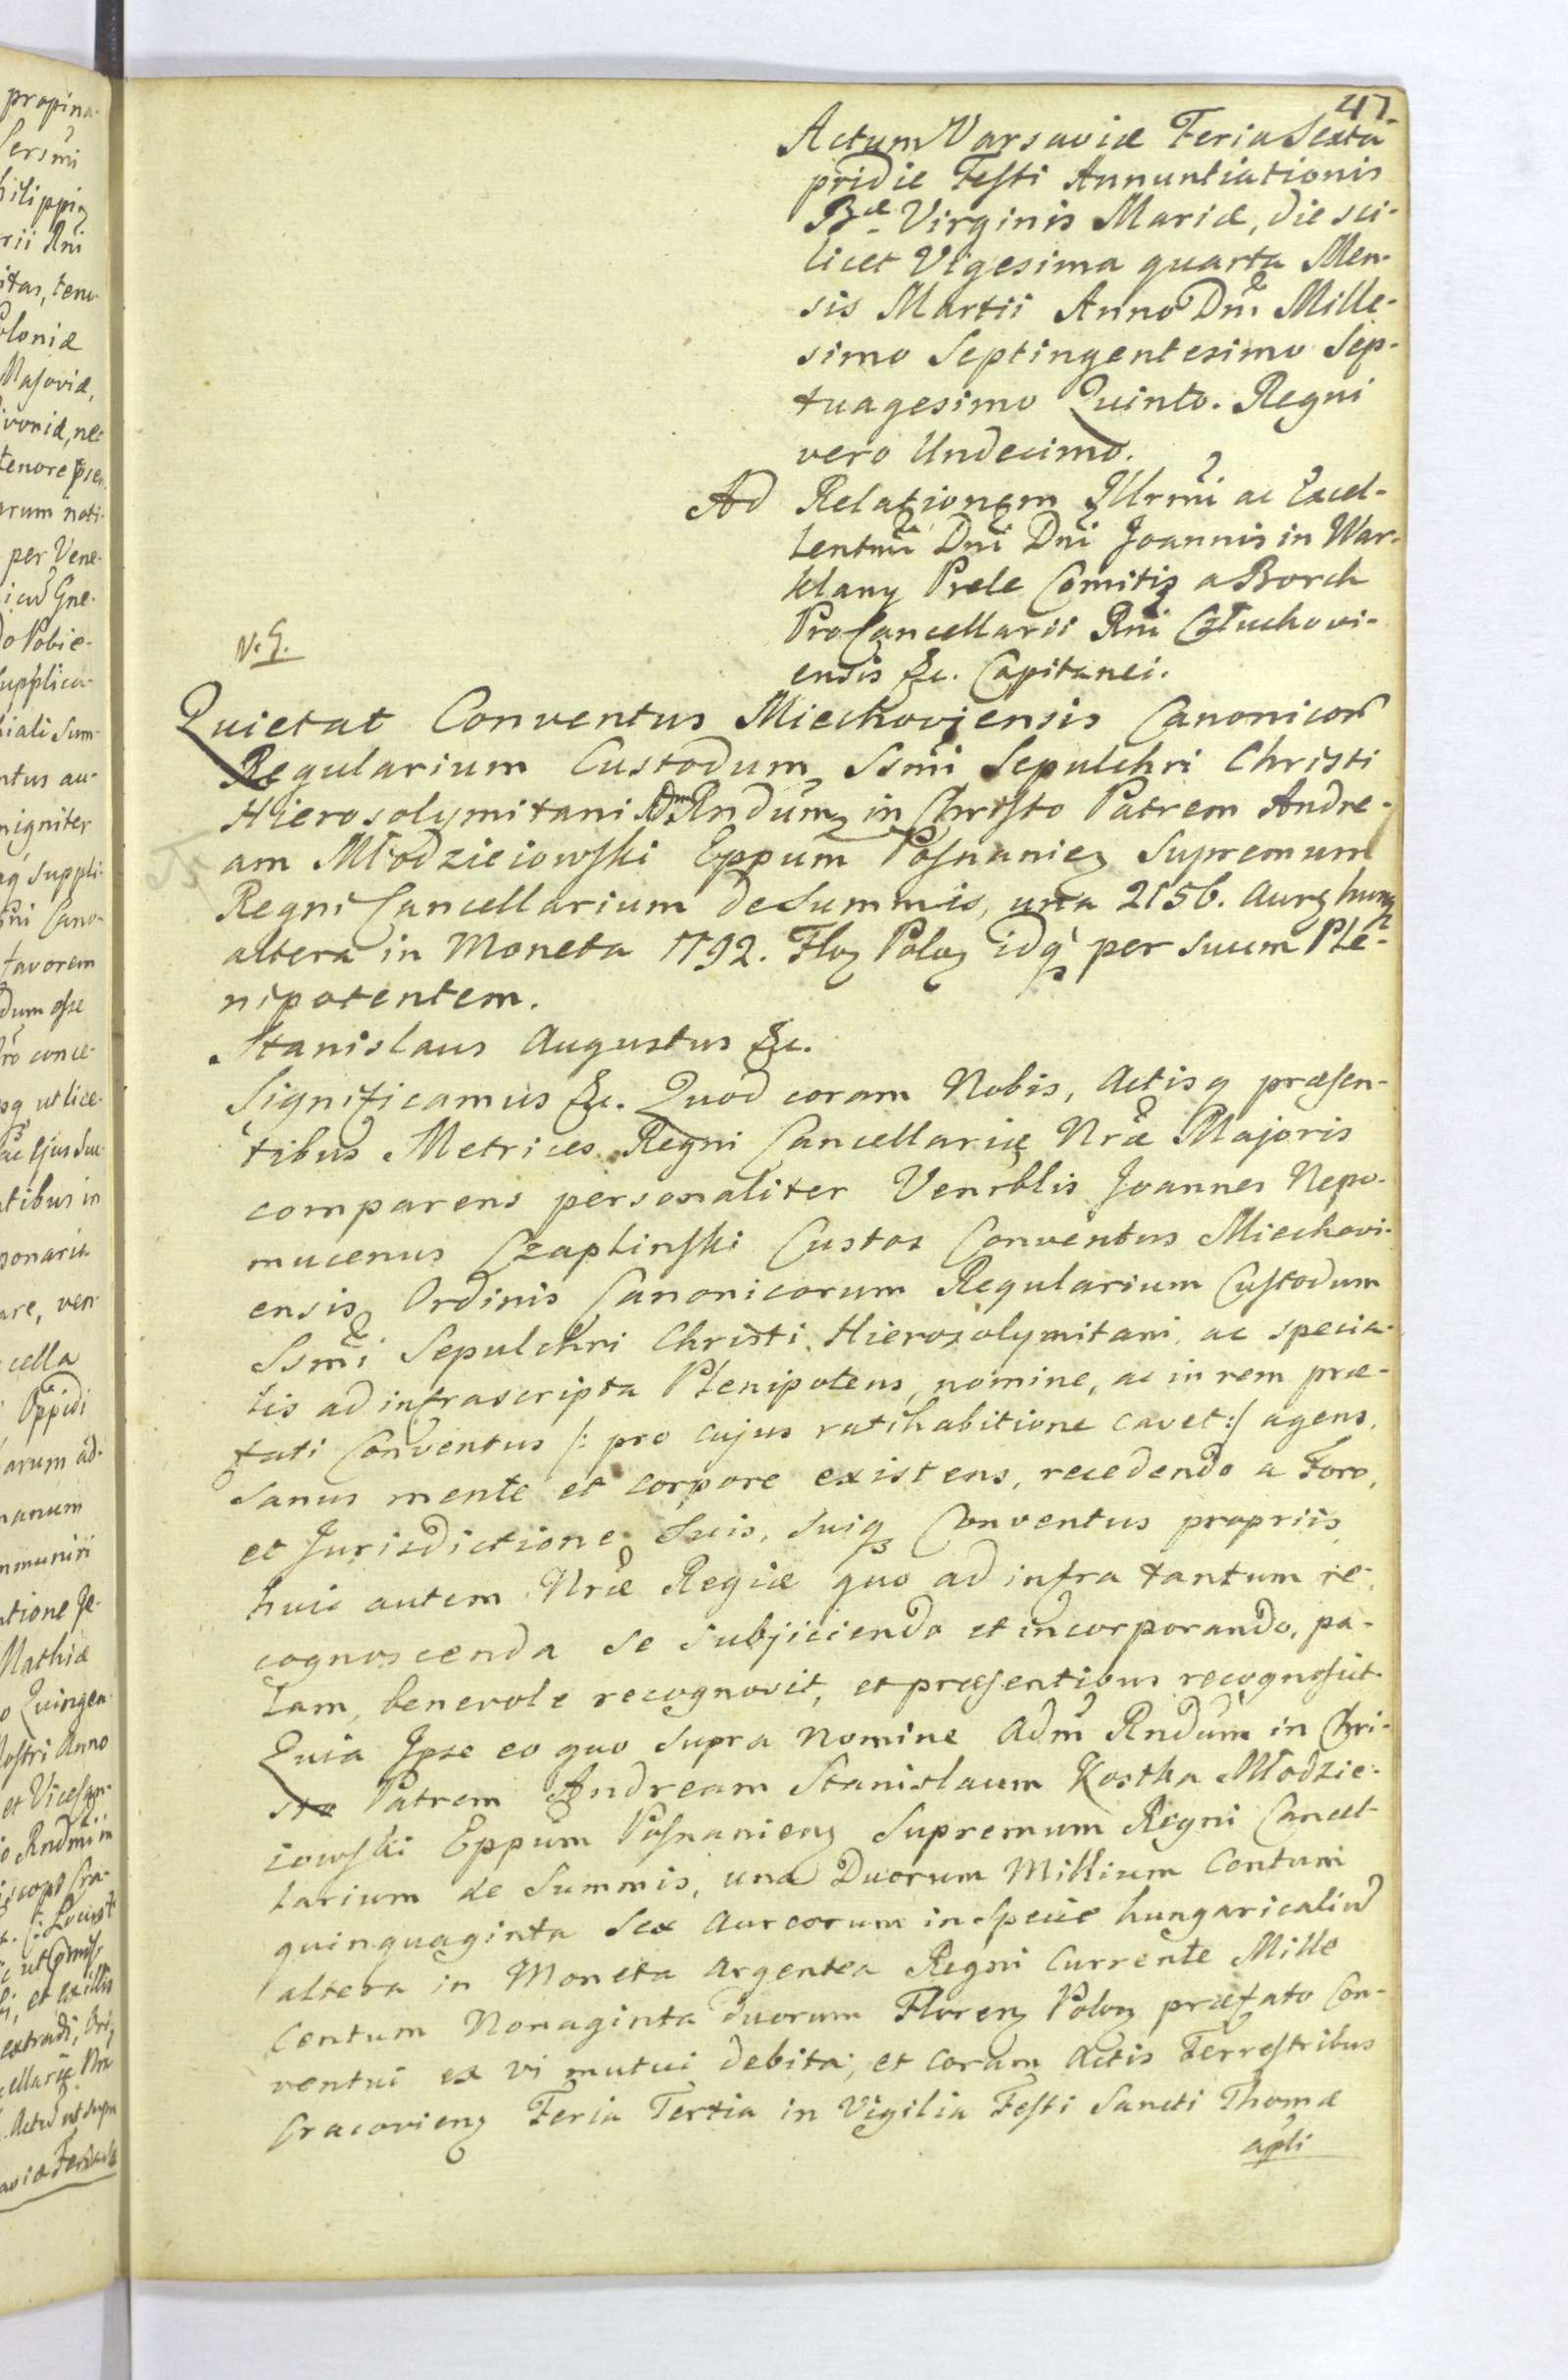 47.
Actum Varsaviæ Feria Sexta
pridie Festi Annuntiationis
Bæ Virginis Mariæ, die sci-
licet Vigesima quarta Men-
sis Martii Anno Dni Mille-
simo Septingentesimo Sep-
tuagesimo Quinto. Regni
vero Undecimo.
Ad Relationem Illrmi ac Excel-
lentmi Dni Dni Joannis in War-
klany Prele Comitis a Borch
ProCancellarii Rni Człuchovi-
ensis &c. Capitanei.
Quietat Conventus Miechoviensis Canonicor
Regularium Custodum Ssmi Sepulchri Christi
Hierosolymitani Adm Rndum in Christo Patrem Andre-
am Młodzieiowski Eppum Posnanien Supremum
Regni Cancellarium de Summis, una 2156. Aur hung
altera in Moneta 1192. Flor Polon idq per suum Ple-
nipotentem.
Stanislaus Augustus &c.
Significamus &c. Quod coram Nobis, Actisq præsen-
tibus Metrices Regni Cancellariæ Nræ Majoris
comparens personaliter Venrblis Joannes Nepo-
mucenus Czaplinski Custos Conventus Miechovi-
ensis Ordinis Canonicorum Regularium Custodum
Ssmi Sepulchri Christi Hierosolymitani, ac specia-
lis ad infrascripta Plenipotens, nomine, ac in rem præ-
fati Conventus /: pro cujus ratihabitione cavet :/ agens,
Sanus mente et corpore existens, recedendo a Foro,
et Jurisdictione Suis, Suiq Conventus propriis,
huic autem Nræ Regiæ quo ad infra tantum re-
cognoscenda se subjiciendo et incorporando, pa-
lam, benevole recognovit, et præsentibus recognoscit.
Quia Ipse eo quo supra nomine Adm Rndum in Chri-
sto Patrem Andream Stanislaum Kostka Młodzie-
iowski Eppum Posnanien Supremum Regni Cancel-
larium de Summis, una Duorum Millium Centum
quinquaginta Sex Aureorum in specie hungaricaliu
altera in Moneta Argentea Regni Currente Mille
Centum Nonaginta duorum Floren Polon præfato Con-
ventui ex vi mutui debita, et coram Actis Terrestribus
Cracovien Feria Tertia in Vigilia Festi Sancti Thomæ
apli